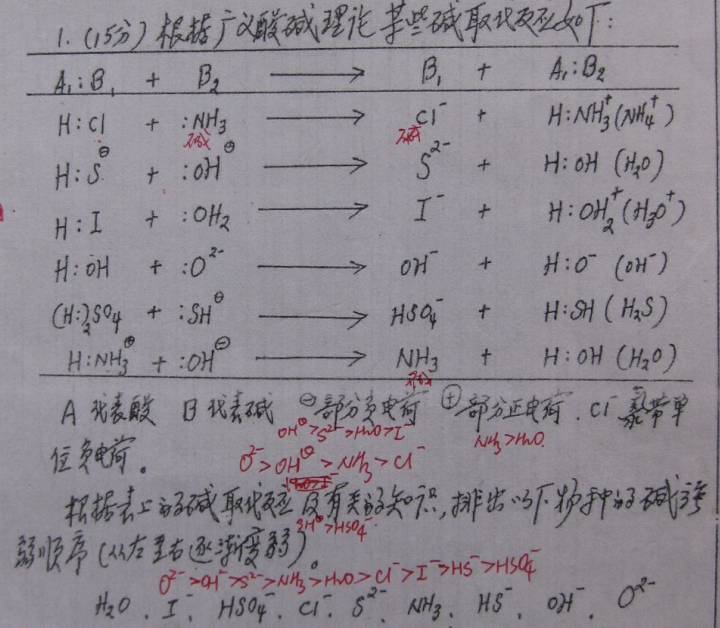 1.(15分)根据广义酸碱理论某些碱取代反应如下:
A₁:B₁ + B₂ ⟶ B₁ + A₁:B₂
H:Cl + :NH₃ ⟶ Cl⁻ + H:NH₃⁺(NH₄⁺)
碱 碱
H:S^⊖ + :OH^⊖ ⟶ S²⁻ + H:OH (H₂O)
H:I + :OH₂ ⟶ I⁻ + H:OH₂⁺(H₃O⁺)
H:OH + :O²⁻ ⟶ OH⁻ + H:O⁻ (OH⁻)
(H:)₂SO₄ + :SH^⊖ ⟶ HSO₄⁻ + H:SH (H₂S)
H:NH₃^⊕ + :OH^⊖ ⟶ NH₃ + H:OH (H₂O)
A代表酸 B代表碱 ⊖部分负电荷 ⊕部分正电荷.Cl⁻ 带单
OH^⊖>S²⁻>H₂O>I⁻ NH₃>H₂O
位负电荷。
O²⁻>OH^⊖>NH₃>Cl⁻
根据表上的碱取代反应及有关的知识,排出以下物种中的碱
SH^⊖>HSO₄⁻
弱顺序(从左至右逐渐变弱)。
O²⁻>OH⁻>S²⁻>NH₃>H₂O>Cl⁻>I⁻>HS⁻>HSO₄⁻
H₂O、I⁻、HSO₄⁻、Cl⁻、S²⁻、NH₃、HS⁻、OH⁻、O²⁻